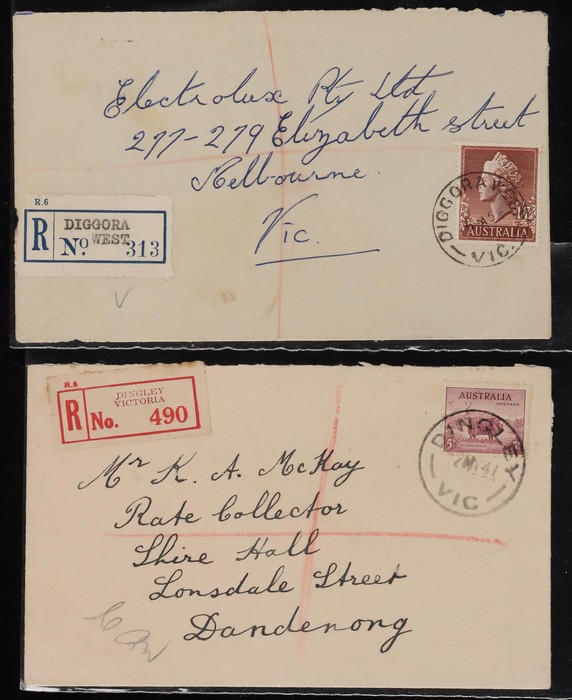 Electrolux Pty Ltd
277-279 Elizabeth street
Melbourne.
Vic.
R.6
R
DIGGORA
WEST
No 313
AUSTRALIA
1/7
DIGGORA WEST
VIC
R.6
R
DINGLEY
VICTORIA
No. 490
AUSTRALIA
POSTAGE
5D
DINGLEY
2 MY 41
VIC
Mr K. A. McKay
Rate Collector
Shire Hall
Lonsdale Street
Dandenong